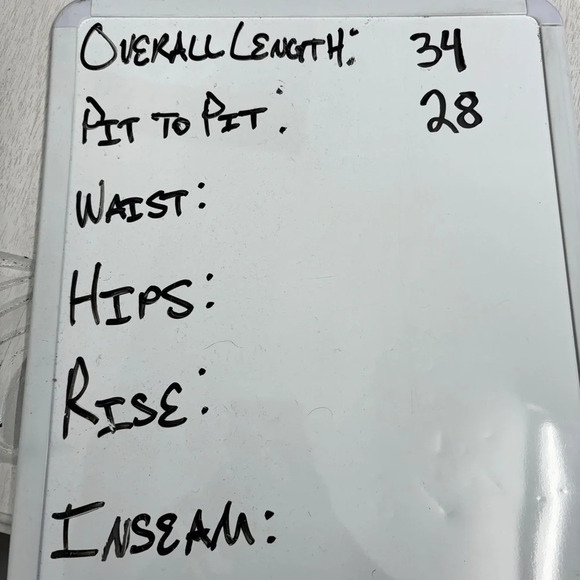 OVERALL LENGTH: 34
PIT TO PIT: 28
WAIST:
HIPS:
RISE:
INSEAM: